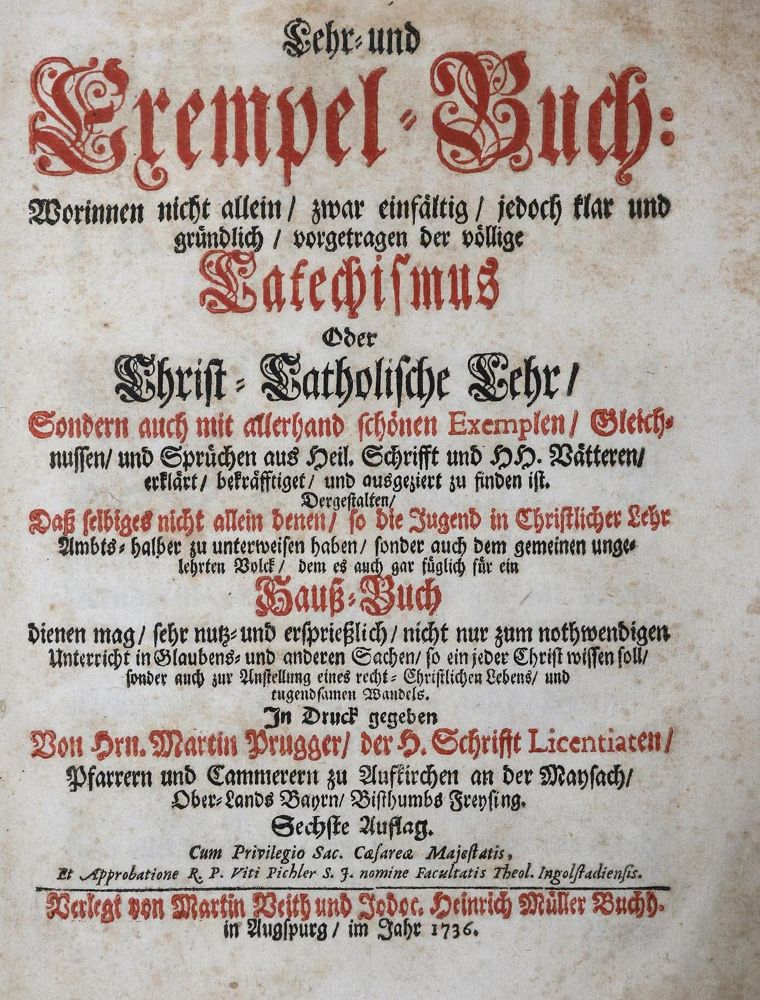 Lehr- und
Exempel-Buch:
Worinnen nicht allein / zwar einfältig / jedoch klar und
gründlich / vorgetragen der völlige
Catechismus
Oder
Christ-Catholische Lehr /
Sondern auch mit allerhand schönen Exemplen / Gleich-
nussen / und Sprüchen aus Heil. Schrifft und HH. Vätteren /
erklärt / bekräfftiget / und ausgeziert zu finden ist.
Dergestalten /
Daß selbiges nicht allein denen / so die Jugend in Christlicher Lehr
Ambts-halber zu unterweisen haben / sonder auch dem gemeinen unge-
lehrten Volck / dem es auch gar füglich für ein
Hauß-Buch
dienen mag / sehr nutz- und ersprießlich / nicht nur zum nothwendigen
Unterricht in Glaubens- und anderen Sachen / so ein jeder Christ wissen soll /
sonder auch zur Anstellung eines recht-Christlichen Lebens / und
tugendsamen Wandels.
In Druck gegeben
Von Hrn. Martin Prugger / der H. Schrifft Licentiaten /
Pfarrern und Cammerern zu Aufkirchen an der Maysach /
Ober-Lands Bayrn / Bisthumbs Freysing.
Sechste Auflag.
Cum Privilegio Sac. Cæsareæ Majestatis,
Et Approbatione R. P. Viti Pichler S. J. nomine Facultatis Theol. Ingolstadiensis.
Verlegt von Martin Veith und Jodoc. Heinrich Müller Buchh.
in Augspurg / im Jahr 1736.